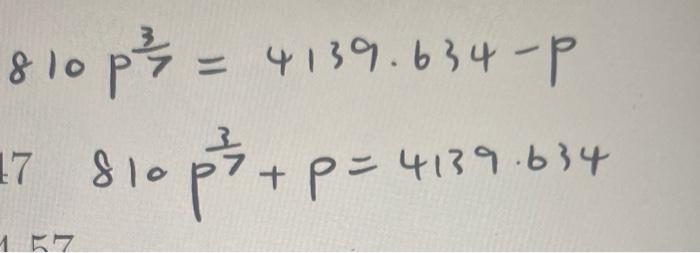 810 p^{3/7} = 4139.634 - p
17 810 p^{3/7} + p = 4139.634